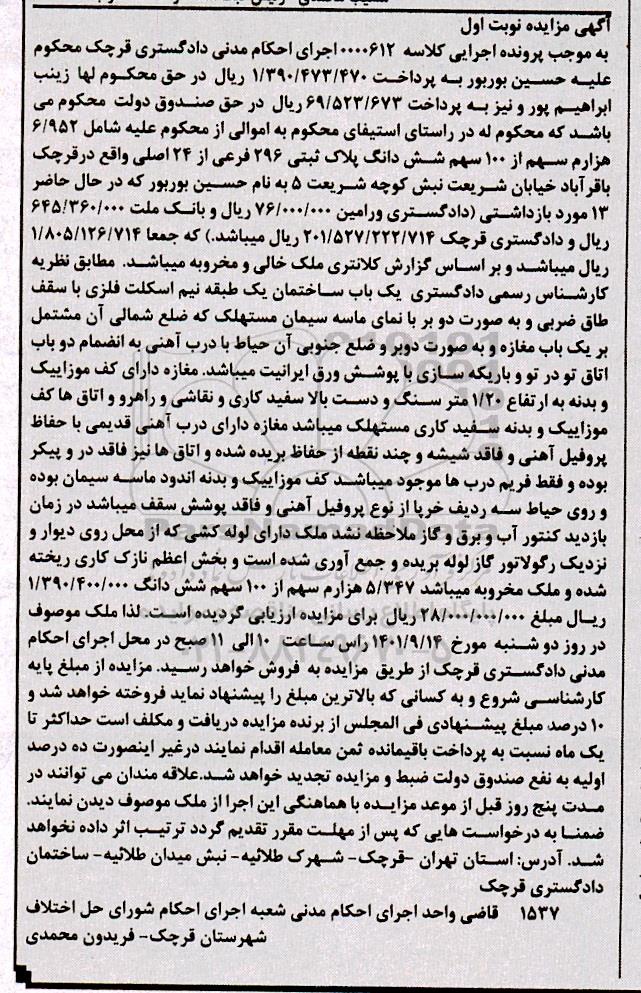 آگهی مزایده نوبت اول
به موجب پرونده اجرایی کلاسه ۰۰۰۰۶۱۲ اجرای احکام مدنی دادگستری قرچک محکوم
علیه حسین بوربور به پرداخت ۱/۳۹۰/۴۷۳/۴۷۰ ریال در حق محکوم لها زینب
ابراهیم پور و نیز به پرداخت ۶۹/۵۲۳/۶۷۳ ریال در حق صندوق دولت محکوم می
باشد که محکوم له در راستای استیفای محکوم به اموالی از محکوم علیه شامل ۶/۹۵۲
هزارم سهم از ۱۰۰ سهم شش دانگ پلاک ثبتی ۲۹۶ فرعی از ۲۴ اصلی واقع درقرچک
باقرآباد خیابان شریعت نبش کوچه شریعت ۵ به نام حسین بوربور که در حال حاضر
۱۳ مورد بازداشتی (دادگستری ورامین ۷۶/۰۰۰/۰۰۰ ریال و بانک ملت ۶۴۵/۳۶۰/۰۰۰
ریال و دادگستری قرچک ۲۰۱/۵۲۷/۲۲۲/۷۱۴ ریال میباشد.) که جمعا ۱/۸۰۵/۱۲۶/۷۱۴
ریال میباشد و بر اساس گزارش کلانتری ملک خالی و مخروبه میباشد. مطابق نظریه
کارشناس رسمی دادگستری یک باب ساختمان یک طبقه نیم اسکلت فلزی با سقف
طاق ضربی و به صورت دو بر با نمای ماسه سیمان مستهلک که ضلع شمالی آن مشتمل
بر یک باب مغازه و به صورت دوبر و ضلع جنوبی آن حیاط با درب آهنی به انضمام دو باب
اتاق تو در تو و باریکه سازی با پوشش ورق ایرانیت میباشد. مغازه دارای کف موزاییک
و بدنه به ارتفاع ۱/۲۰ متر سنگ و دست بالا سفید کاری و نقاشی و راهرو و اتاق ها کف
موزاییک و بدنه سفید کاری مستهلک میباشد مغازه دارای درب آهنی قدیمی با حفاظ
پروفیل آهنی و فاقد شیشه و چند نقطه از حفاظ بریده شده و اتاق ها نیز فاقد در و پیکر
بوده و فقط فریم درب ها موجود میباشد کف موزاییک و بدنه اندود ماسه سیمان بوده
و روی حیاط سه ردیف خرپا از نوع پروفیل آهنی و فاقد پوشش سقف میباشد در زمان
بازدید کنتور آب و برق و گاز ملاحظه نشد ملک دارای لوله کشی که از محل روی دیوار و
نزدیک رگولاتور گاز لوله بریده و جمع آوری شده است و بخش اعظم نازک کاری ریخته
شده و ملک مخروبه میباشد ۵/۳۴۷ هزارم سهم از ۱۰۰ سهم شش دانگ ۱/۳۹۰/۴۰۰/۰۰۰
ریال مبلغ ۲۸/۰۰۰/۰۰۰/۰۰۰ ریال برای مزایده ارزیابی گردیده است. لذا ملک موصوف
در روز دو شنبه مورخ ۱۴۰۱/۹/۱۴ راس ساعت ۱۰ الی ۱۱ صبح در محل اجرای احکام
مدنی دادگستری قرچک از طریق مزایده به فروش خواهد رسید. مزایده از مبلغ پایه
کارشناسی شروع و به کسانی که بالاترین مبلغ را پیشنهاد نماید فروخته خواهد شد و
۱۰ درصد مبلغ پیشنهادی فی المجلس از برنده مزایده دریافت و مکلف است حداکثر تا
یک ماه نسبت به پرداخت باقیمانده ثمن معامله اقدام نمایند درغیر اینصورت ده درصد
اولیه به نفع صندوق دولت ضبط و مزایده تجدید خواهد شد.علاقه مندان می توانند در
مدت پنج روز قبل از موعد مزایده با هماهنگی این اجرا از ملک موصوف دیدن نمایند.
ضمنا به درخواست هایی که پس از مهلت مقرر تقدیم گردد ترتیب اثر داده نخواهد
شد. آدرس: استان تهران -قرچک- شهرک طلائیه- نبش میدان طلائیه- ساختمان
دادگستری قرچک
۱۵۳۷ قاضی واحد اجرای احکام مدنی شعبه اجرای احکام شورای حل اختلاف
شهرستان قرچک- فریدون محمدی